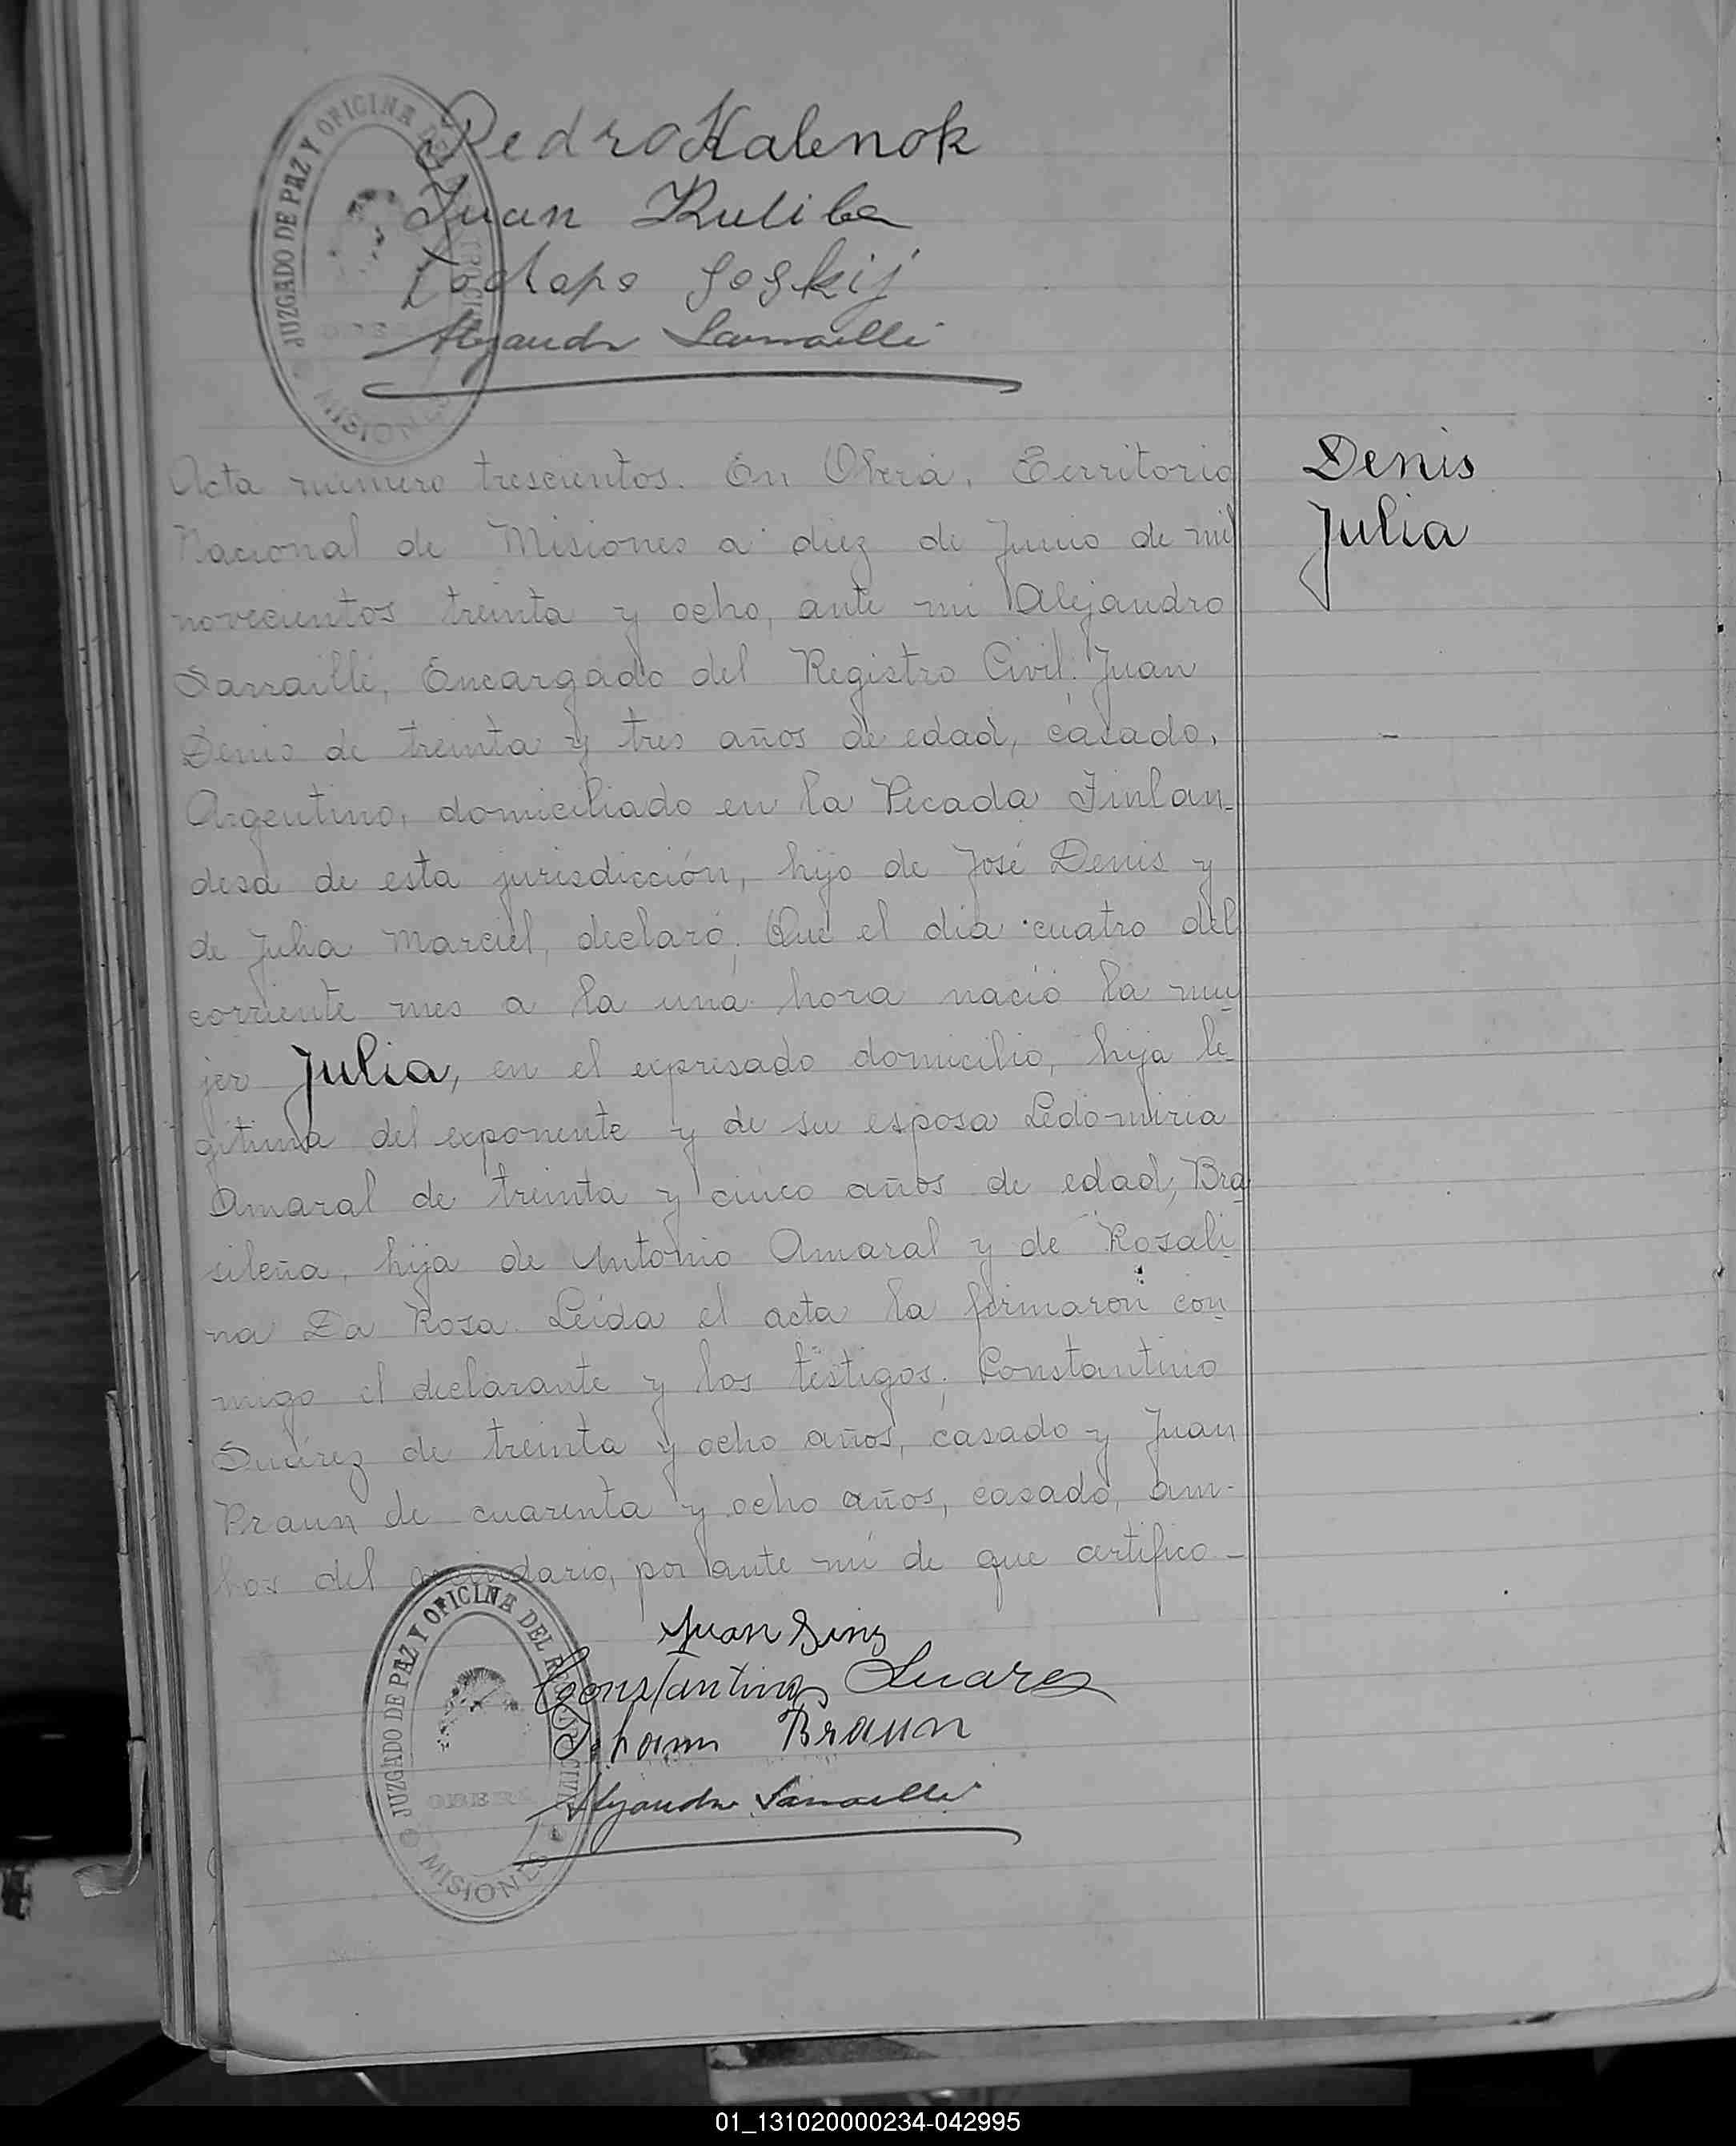 Pedro Kalenok
Juan Kuliba
Alejandro Sarraillé
JUZGADO DE PAZ Y OFICINA DEL
MISIONES
Acta número trescientos. En Oberá, Territorio
Nacional de Misiones a diez de Junio de mil
novecientos treinta y ocho, ante mi Alejandro
Sarraillé, Encargado del Registro Civil: Juan
Denis de treinta y tres años de edad, casado,
Argentino, domiciliado en la Picada Finlan-
desa de esta jurisdicción, hijo de José Denis y
de Julia Marciel, declaró; Que el día cuatro del
corriente mes a la una hora nació la mu
jer Julia, en el expresado domicilio, hija le-
gitima del exponente y de su esposa Ledomiria
Amaral de treinta y cinco años de edad, Bra
sileña, hija de Antonio Amaral y de Rosali-
na Da Rosa. Leída el acta la firmaron con-
migo el declarante y los testigos; Constantino
Suárez de treinta y ocho años, casado y Juan
Praun de cuarenta y ocho años, casado, am-
bos del vecindario, por ante mí de que certifico-
Denis
Julia
Juan
Constantino Suarez
Johann Braun
Alejandro Sarraillé
JUZGADO DE PAZ Y OFICINA DEL REGISTRO CIVIL
OBERÁ
MISIONES
01_131020000234-042995